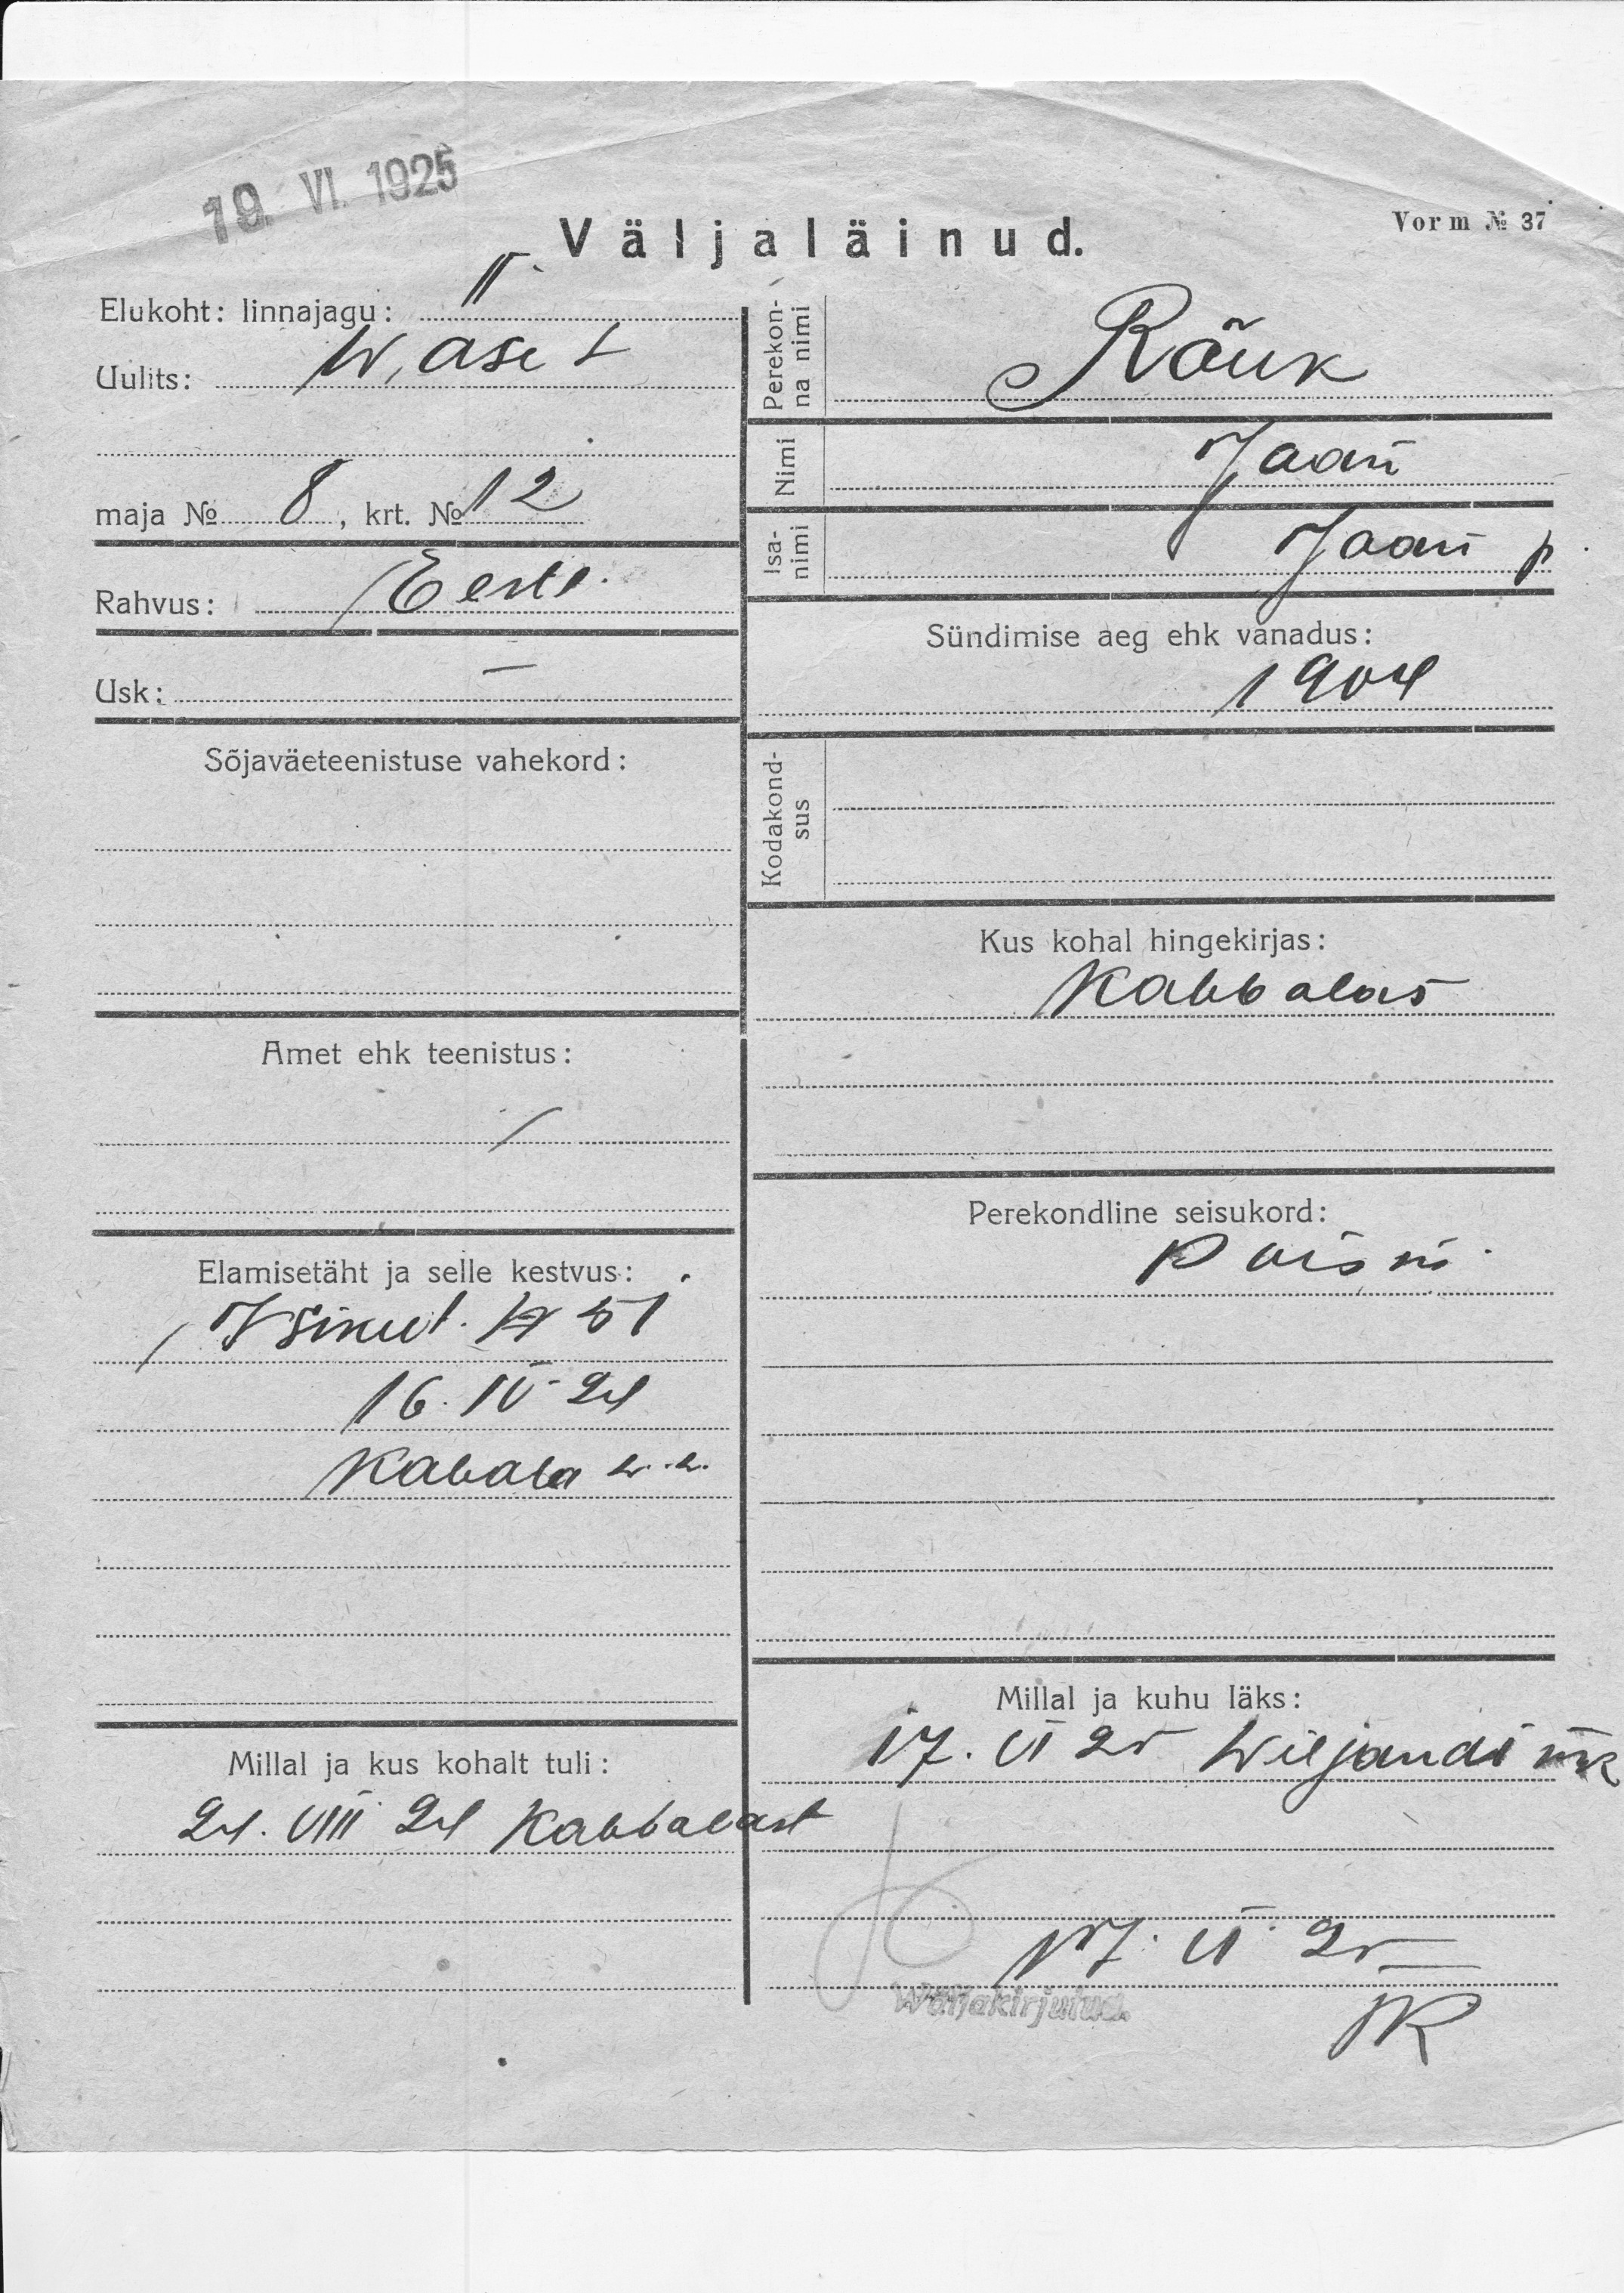 19. VI. 1925
Väljaläinud.
Vorm № 37
Elukoht: linnajagu: II.
Uulits: Wase t
maja № 8, krt. № 12
Rahvus: Eesti.
Usk: —
Sõjaväeteenistuse vahekord:
Amet ehk teenistus:
/
Elamisetäht ja selle kestvus:
Isikut. № 51
16. IV 24
Kabala w. w.
Millal ja kus kohalt tuli:
24. VIII 24 Kabbalast
Perekonna nimi
Rõuk
Nimi
Jaan
Isanimi
Jaan p.
Sündimise aeg ehk vanadus:
1904
Kodakondsus
Kus kohal hingekirjas:
Kabbalas
Perekondline seisukord:
Millal ja kuhu läks:
17. VI 25 Wiljandi mk
17. VI 25
Wäljakirjutud.